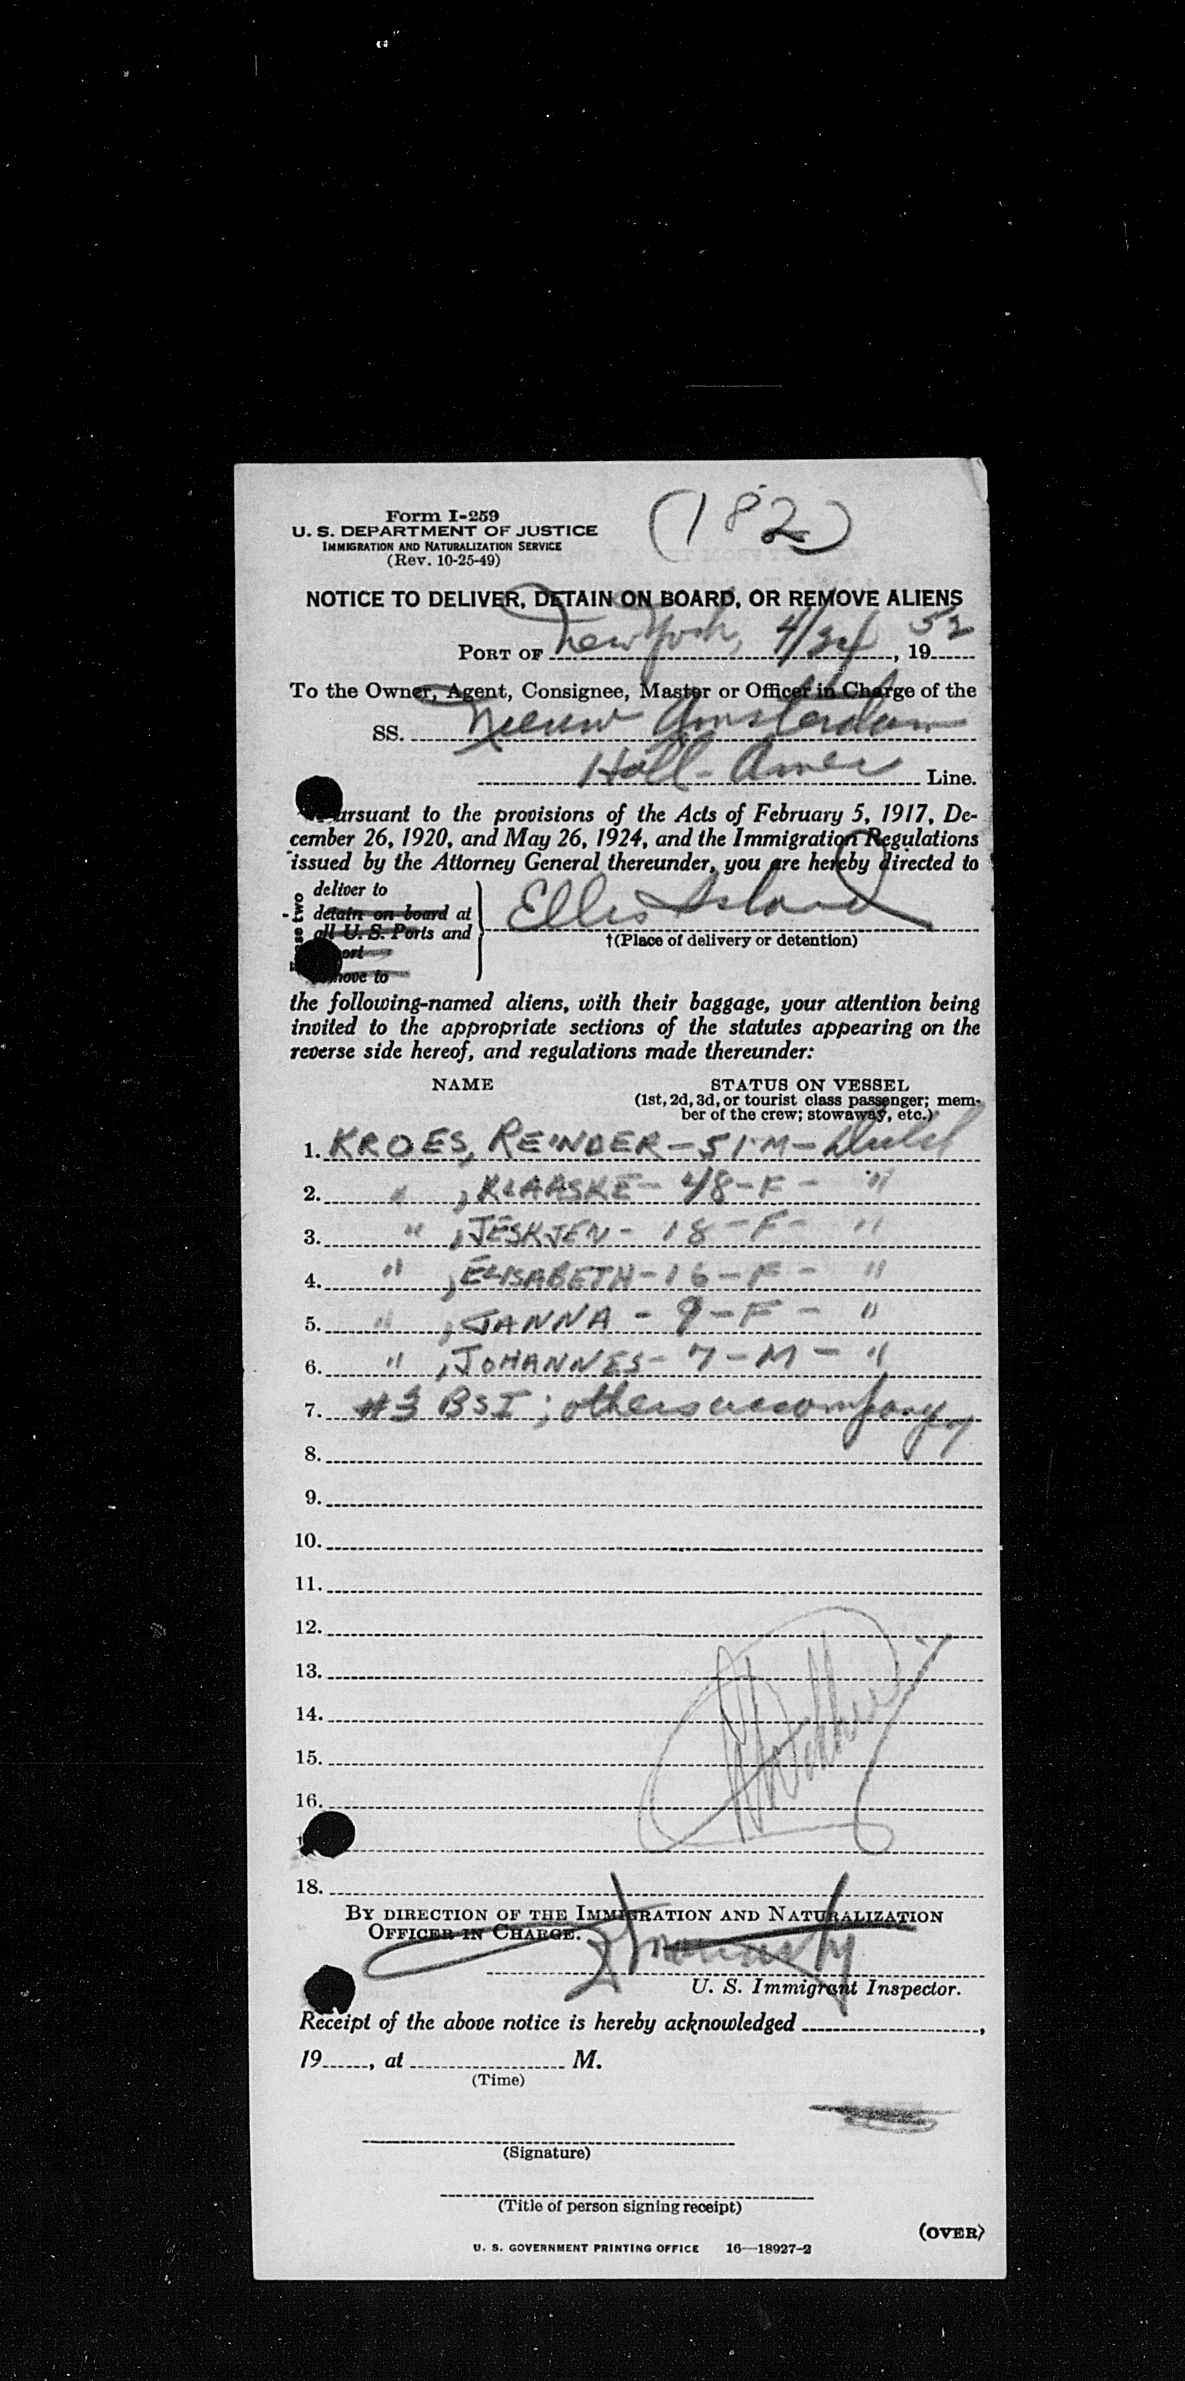 (182)
Form I-259
U. S. DEPARTMENT OF JUSTICE
IMMIGRATION AND NATURALIZATION SERVICE
(Rev. 10-25-49)
NOTICE TO DELIVER, DETAIN ON BOARD, OR REMOVE ALIENS
PORT OF New York, 4/24, 1952
To the Owner, Agent, Consignee, Master or Officer in Charge of the
SS. Nieuw Amsterdam
Holl-Amer Line.
Pursuant to the provisions of the Acts of February 5, 1917, De-
cember 26, 1920, and May 26, 1924, and the Immigration Regulations
issued by the Attorney General thereunder, you are hereby directed to
deliver to
detain on board at
all U. S. Ports and
Ellis Island
†(Place of delivery or detention)
the following-named aliens, with their baggage, your attention being
invited to the appropriate sections of the statutes appearing on the
reverse side hereof, and regulations made thereunder:
NAME STATUS ON VESSEL
(1st, 2d, 3d, or tourist class passenger; mem-
ber of the crew; stowaway, etc.)
1. KROES, REINDER - 51-M - Dutch
2. " , KLAASKE - 48 - F - "
3. " , JESKJEN - 18 - F - "
4. " , ELISABETH - 16 - F - "
5. " , JANNA - 9 - F - "
6. " , JOHANNES - 7 - M - "
7. #3 BSI ; others accompany
8.
9.
10.
11.
12.
13.
14.
15.
16.
18.
BY DIRECTION OF THE IMMIGRATION AND NATURALIZATION
OFFICER IN CHARGE.
U. S. Immigrant Inspector.
Receipt of the above notice is hereby acknowledged ,
19 , at M.
(Time)
(Signature)
(Title of person signing receipt)
(OVER)
U. S. GOVERNMENT PRINTING OFFICE 16—18927-2